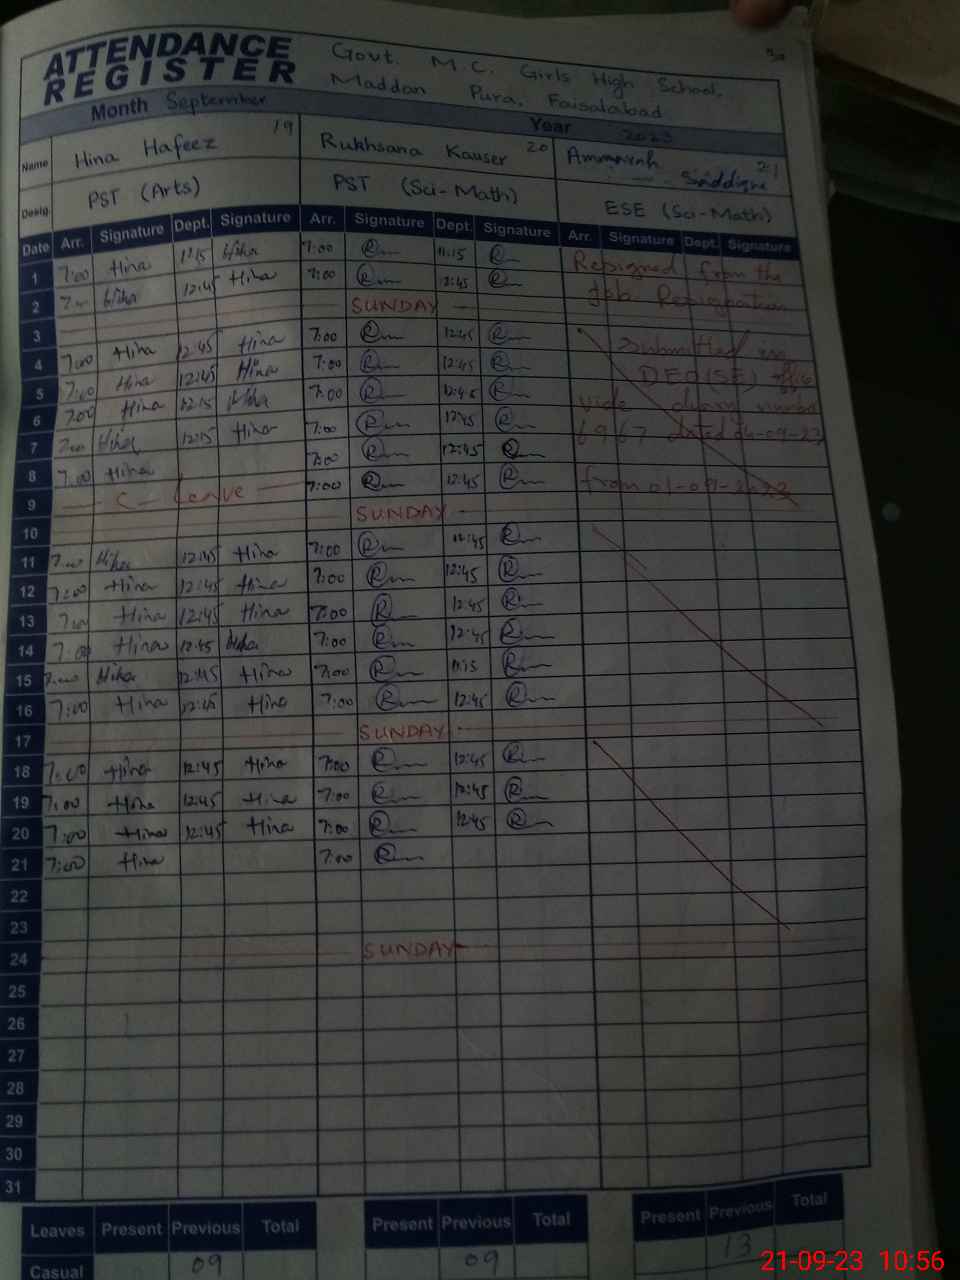 ATTENDANCE REGISTER
Govt. M.C. Girls High School,
Maddan Pura, Faisalabad
Month September Year 2023
Name Hina Hafeez 19 Rukhsana Kauser 20 21
Desig. PST (Arts) PST (Sci-Math) ESE (Sci-Math)
Date Arr. Signature Dept. Signature Arr. Signature Dept. Signature Arr. Signature Dept. Signature
1 7:00 Hina Hina 7:00 11:15 Resigned from the
2 Hina 12:45 Hina 7:00 12:45 job. Resignation
3 SUNDAY
4 7:00 Hina 12:45 Hina 7:00 12:45 Submitted in
5 7:00 Hina 12:45 Hina 7:00 12:45 DEO(SE)
6 7:00 Hina 12:15 Hina 7:00 12:45 vide diary number
7 Hina 12:15 Hina 7:00 12:45 6967 dated 04-09-23
8 7:00 Hina 7:00 12:45
9 C- Leave 7:00 12:45 from 01-09-2023
10 SUNDAY
11 Hina 12:45 Hina 7:00 12:45
12 7:00 Hina 12:45 Hina 7:00 12:45
13 Hina 12:45 Hina 7:00 12:45
14 7:00 Hina 12:45 Hina 7:00 12:45
15 Hina 12:45 Hina 7:00 11:15
16 7:00 Hina 12:45 Hina 7:00 12:45
17 SUNDAY
18 7:00 Hina 12:45 Hina 7:00 12:45
19 7:00 Hina 12:45 Hina 7:00 12:45
20 7:00 Hina 12:45 Hina 7:00 12:45
21 7:00 Hina 7:00
22
23
24 SUNDAY
25
26
27
28
29
30
31
Leaves Present Previous Total Present Previous Total Present Previous Total
Casual 09 09 13
21-09-23 10:56